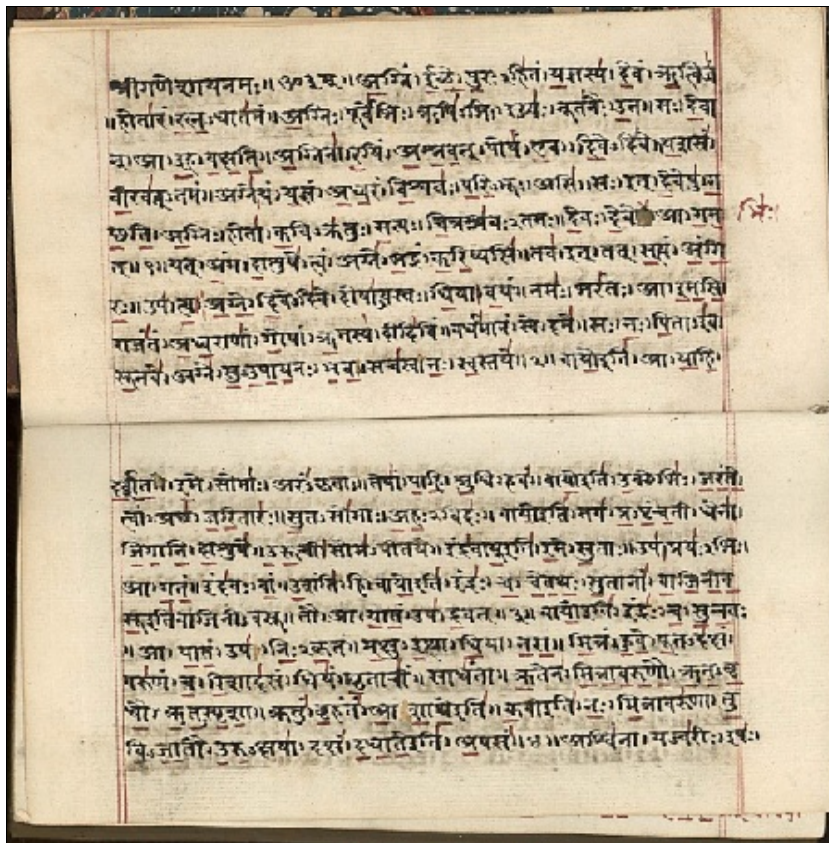 श्रीगणेशायनमः॥ॐ३म्॥अ॒ग्निं।ई॒ळे॒।पु॒रः२हि॑तं।य॒ज्ञस्य॑।दे॒वं।ऋ॒त्विजं॑
॥होता॑रं।र॒त्न॒२धात॑मं॥अ॒ग्निः।पूर्वे॑भिः।ऋषि॑२भिः।ईड्यः॑।नूत॑नैः।उ॒त॥सः।दे॒वा
न्।आ।इ॒ह।व॒क्ष॒ति॒॥अ॒ग्निना॑।र॒यिं।अ॒श्न॒व॒त्।पोषं॑।ए॒व।दि॒वे२दि॑वे॥य॒शसं॑
वी॒रव॑त्२तमं॥अग्ने॑।यं।य॒ज्ञं।अ॒ध्व॒रं।वि॒श्वतः॑।प॒रि॒२भूः।असि॑॥सः।इत्।दे॒वेषु॑।ग
च्छ॒ति॒॥अ॒ग्निः।होता॑।क॒वि२क्र॑तुः।स॒त्यः।चि॒त्रश्र॑वः२तमः॥दे॒वः।दे॒वे।आ।ग॒म॒
भिः।
त्॥१॥यत्।अं॒ग।दा॒शुषे॑।त्वं।अग्ने॑।भ॒द्रं।क॒रि॒ष्यसि॑॥तव॑।इत्।तत्।स॒त्यं।अं॒गि॒
रः॒॥उप॑।त्वा॒।अ॒ग्ने॒।दि॒वे२दि॑वे।दोषा॑२वस्तः।धि॒या।व॒यं॥नमः॑।भरं॑तः।आ।इ॒म॒सि॒॥
राजं॑तं।अ॒ध्व॒राणां॑।गो॒पां।ऋ॒तस्य॑।दीदि॑विं॥वर्ध॑मानं।स्वे।दमे॑॥सः।नः॒।पि॒ता२इ॑व
सू॒नवे॑।अग्ने॑।सु॒२उ॒पा॒य॒नः।भ॒व॒॥सच॑स्व।नः॒।स्व॒स्तये॑॥२॥वायो॒इति॑।आ।या॒हि॒
द॒र्श॒त॒।इ॒मे।सोमाः॑।अरं॑२कृताः॥तेषां॑।पा॒हि॒।श्रु॒धि।हवं॑॥वायो॒इति॑।उ॒क्थेभिः॑।ज॒रं॒ते॒
त्वां।अच्छ॑।ज॒रि॒तारः॑॥सु॒त२सो॑माः।अ॒हः॒२विदः॑॥वायो॒इति॑।तव॑।प्र॒२पृं॒च॒ती।धेना॑
जि॒गा॒ति॒।दा॒शुषे॑॥उ॒रू॒ची।सोम॑२पीतये॥इंद्र॑वायू॒इति॑।इ॒मे।सु॒ताः॥उप॑।प्रयः॑२भिः।
आ।ग॒तं॒॥इंद॑वः।वां॒।उ॒शंति॑।हि॥वायो॒इति॑।इंद्रः॑।च॒।चे॒त॒थः॒।सु॒तानां॑।वा॒जि॒नी॒व॒
सू॒इति॑वाजिनी२वसू॥तौ।आ।या॒तं॒।उप॑।द्र॒वत्॥३॥वायो॒इति॑।इंद्रः॑।च॒।सु॒न्व॒तः
॥आ।या॒तं॒।उप॑।निः॒२कृ॒तं॥म॒क्षु।इ॒त्था।धि॒या।न॒रा॒॥मि॒त्रं।हु॒वे॒।पू॒त२द॑क्षं।
वरु॑णं।च॒।रि॒शाद॑सं।धियं॑।घृ॒ताचीं॑।साधं॑ता॥ऋ॒तेन॑।मि॒त्रा॒व॒रु॒णौ॒।ऋ॒त॒२वृ॒
धौ॒।ऋ॒त॒२स्पृ॒शा॒॥क्रतुं॑।बृ॒हंतं॑।आ॒शा॒थे॒इति॑॥क॒वीइति॑।नः॒।मि॒त्रावरु॑णा।तु॒
वि॒२जा॒तौ।उ॒रु॒२क्षया॑।दक्षं॑।द॒धा॒ते॒इति॑।अ॒पसं॑॥४॥अश्वि॑ना।यज्व॑रीः।इषः॑।